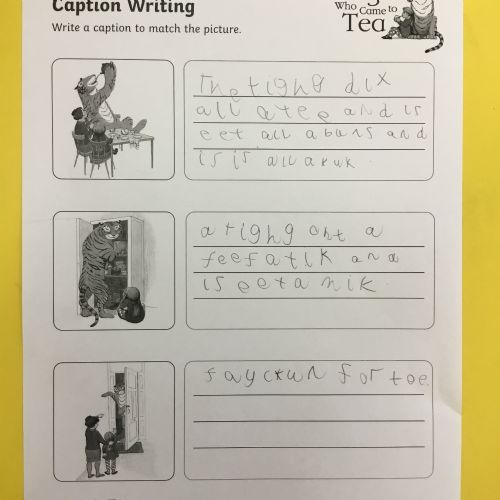 Caption Writing
Write a caption to match the picture.
Who Came to
Tea
The tighg dix
all atee and is
eet all abuns and
is is all akuk.
a tighg ont a
feefatik and
is eeta nik.
fayckun for toe.